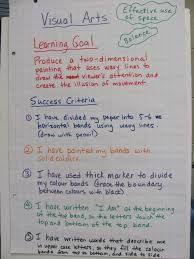 Visual Arts
Effective use
of space
Balance
Learning Goal
Produce a two-dimensional
painting that uses wavy lines to
draw the viewer's attention and
create the illusion of movement.
Success Criteria
1 I have divided my paper into 5-6
horizontal bands using wavy lines
(draw with pencil)
2 I have painted my bands with
solid colour.
3 I have used thick marker to divide
my colour bands (trace the boundary
between colours with black)
4 I have written "I am" at the beginning
of the top band, so the letters touch the
top and bottom of the band.
5 I have written words that describe me
in upper case letters, so they fill the colour
bands from top to bottom, and side to side.